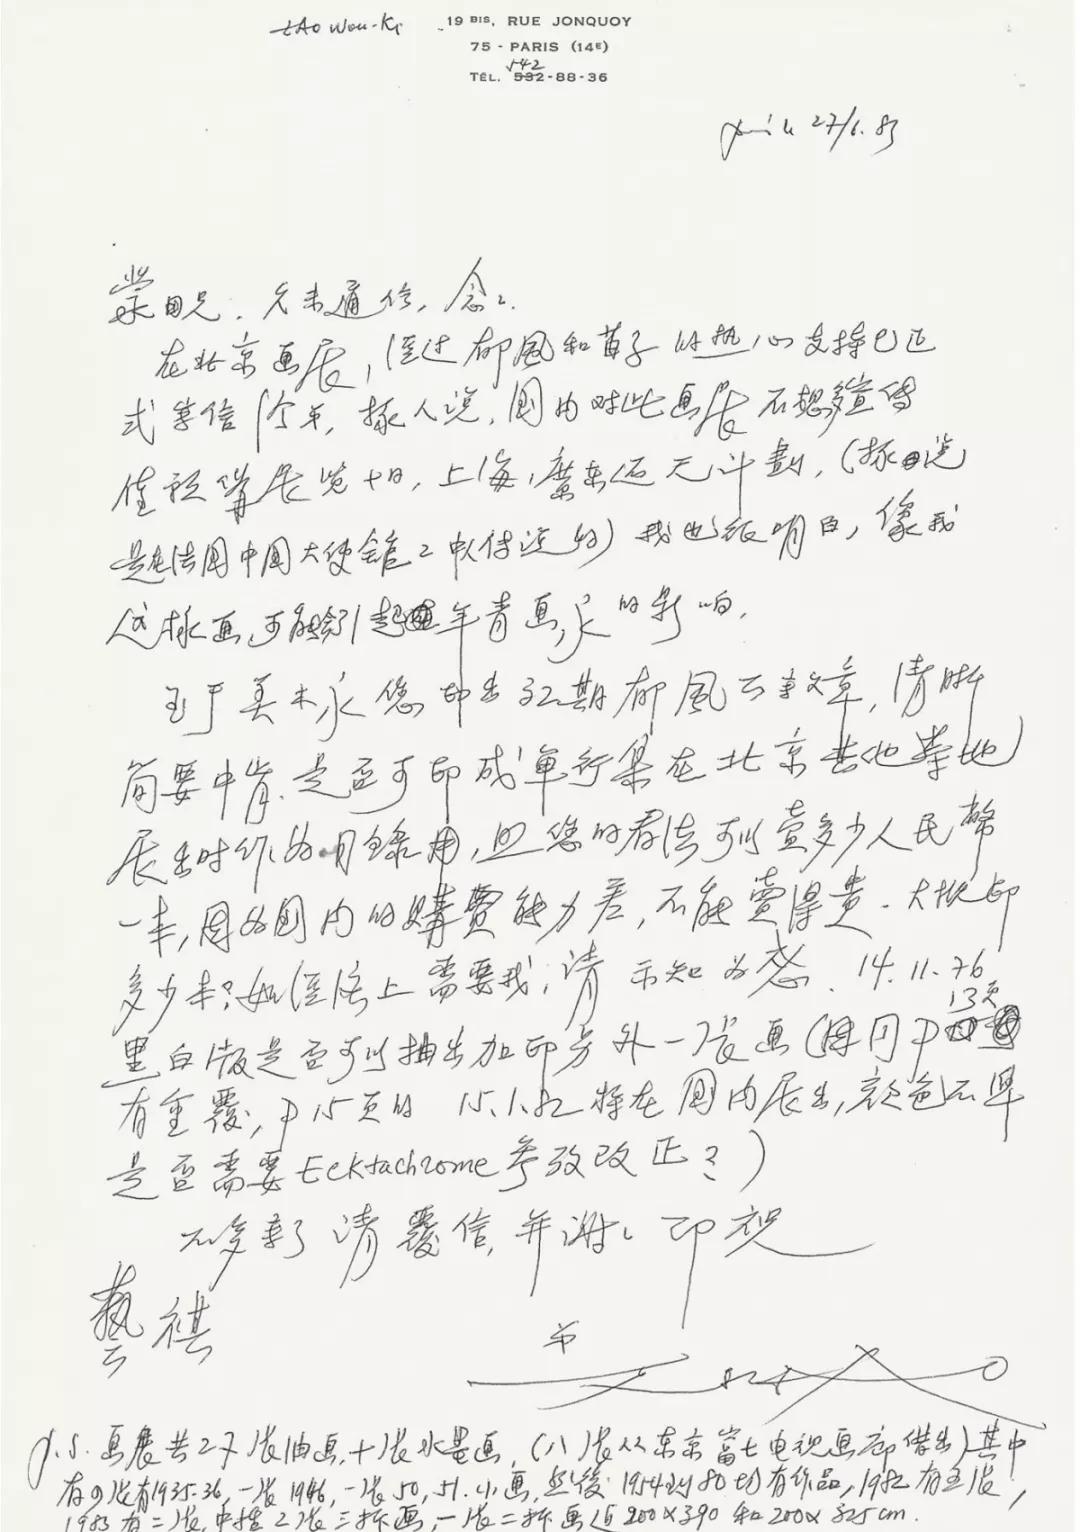 ZAO Wou-Ki
19 BIS, RUE JONQUOY
75 - PARIS (14E)
542
TÉL. 532-88-36
Paris le 27/1.83
棠田兄，久未通信，念々．
在北京画展，经过郁風和苗子的热心支持已正
式等信 今年，据人说，国内对此画展不想多宣傳
僅预備展览十日，上海，廣東还无计劃，(据说
是在法国中国大使馆工作人传说的) 我也很明白，像我
这様画，可能会引起年青画家的影响．
至于美术家您印出 32期郁風 文章，清晰
简要中肯．是否可印成單行集在北京其他 地
展出时作为目錄用，照您的看法可以卖多少人民幣
一本，因为国内的購買能力差，不能賣得贵．大批印
多少本？如经济上需要我，请示知为感．14.11.76
黑白版是否可以抽出加印另外一张画（因同P 13页
有重覆，P15页的 15.1.82 将在国内展出，颜色不準
是否需要Ecktachrome 参考改正？）
不多寫了 请覆信，并谢々 即祝
藝祺
弟
无极
P.S. 画展共27张油画，十张水墨画，（八张从東京富士电視画廊借出）其中
有 张有1935-36，一张1946，一张50，51.小画，然後1954到80均有作品，1982有 张，
1983有二张，中挂2张三折画，一张二折画 200×390 和 200×525cm．